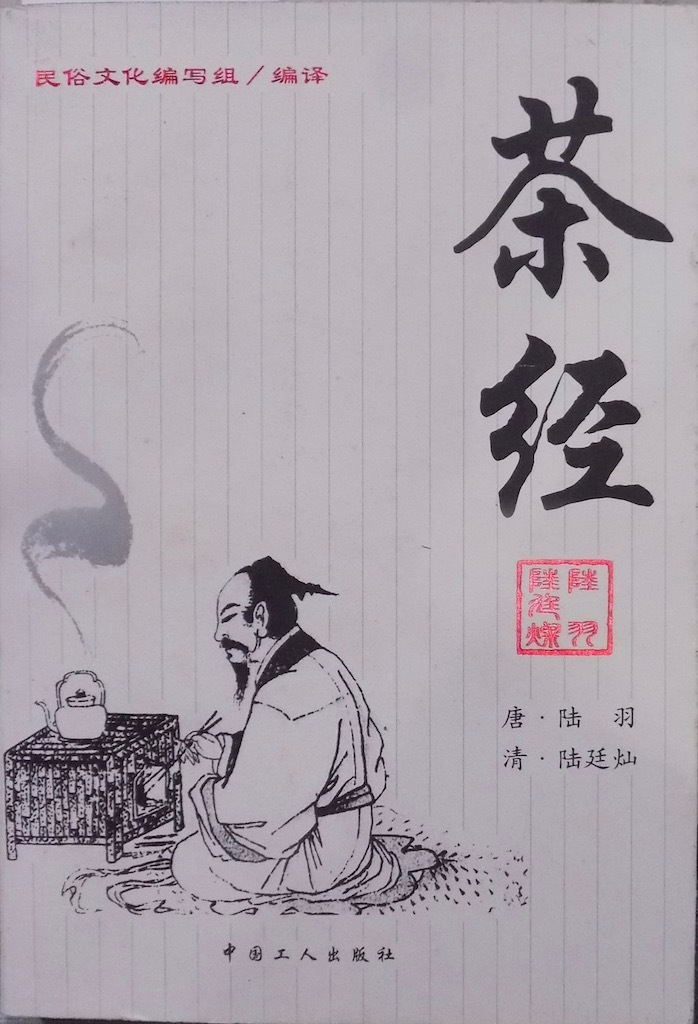 民俗文化编写组／编译
茶经
陸羽
陸廷燦
唐·陆 羽
清·陆廷灿
中国工人出版社